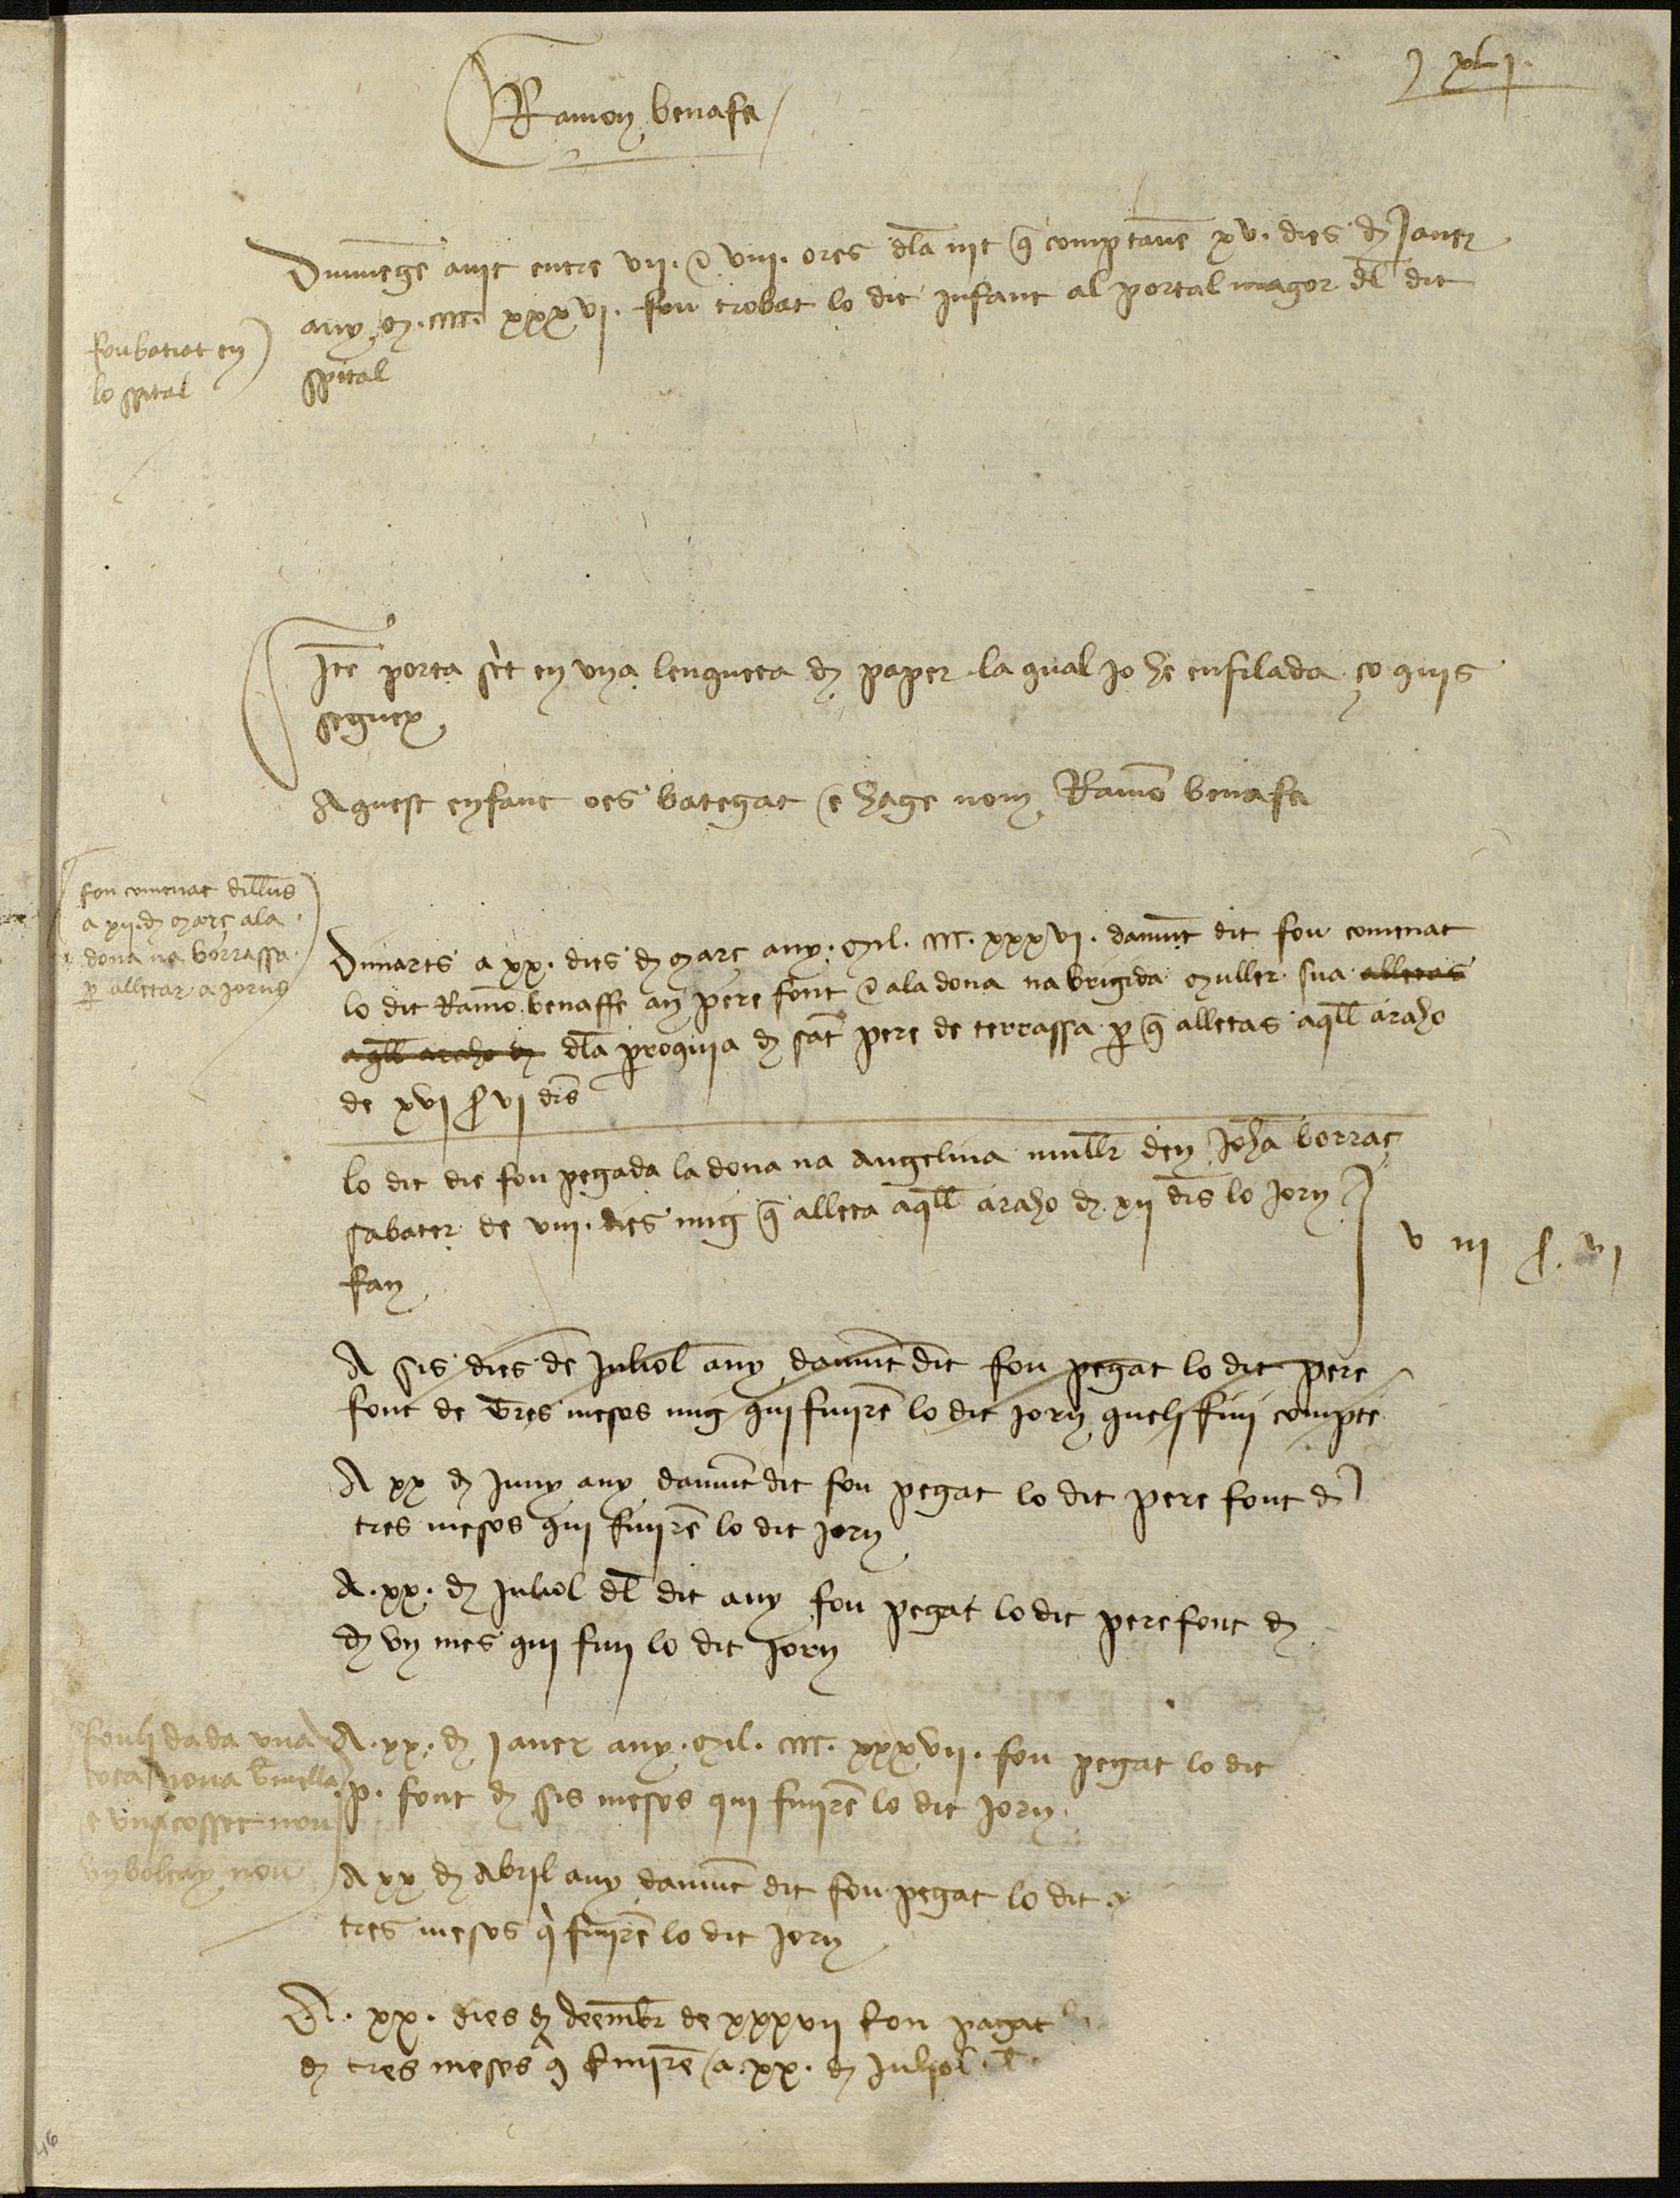 j xL j.
Ramon benafe
Diumenge anit entre vij. e viij. ores dla nit q comptavẽ xv. dies de Janer
any M. CCCC. xxxvj. fou trobat lo dit jnfant al portal magor dl dit
spital
fou batiat en
lo spital
Itẽ porta scrit en vna lengueta de paper la qual jo he enfilada ço quis
seguex
Aquest enfant oes bategat e hage nom Ramõ benafe
fou comenat dilluns
a xij. de març ala
dona na borrassa
p alletar a jorns
Dimarts a xx. dies de març any. Mil. CCCC. xxxvj. damũt dit fou comenat
lo dit Ramõ benaffe an pere font e ala dona na brigida muller sua alletas
aqll araho de dla proquia de sat pere de terrassa p q alletas aqll araho
de xvj s vj drs
lo dit die fou pegada la dona na Angelina mullr den Johã borraç
sabater de viij. dies mig q alleta aqll araho de xij drs lo jorn
fan
v iij s. vj
A sis dies de juliol any damũt dit fou pegat lo dit pere
font de tres mesos mig qui finirẽ lo dit jorn quels finj compte
A xx de juny any damũt dit fou pegat lo dit pere font de
tres mesos qui finirẽ lo dit jorn
A. xx. de juliol dl dit any fou pegat lo dit pere font de
de vn mes qui finj lo dit jorn
fouli dada vna
nova vmella
e vn cosset nou
vn bolcay nou
A. xx. de janer any. Mil. CCCC. xxxvij. fou pegat lo dit
p. font de sis mesos qui finirẽ lo dit jorn
A xx de Abril any damũt dit fou pegat lo dit
tres mesos q finirẽ lo dit jorn
A. xx. dies de deembr de xxxvij fou pagat
de tres mesos q finirẽ a. xx. de juliol
46